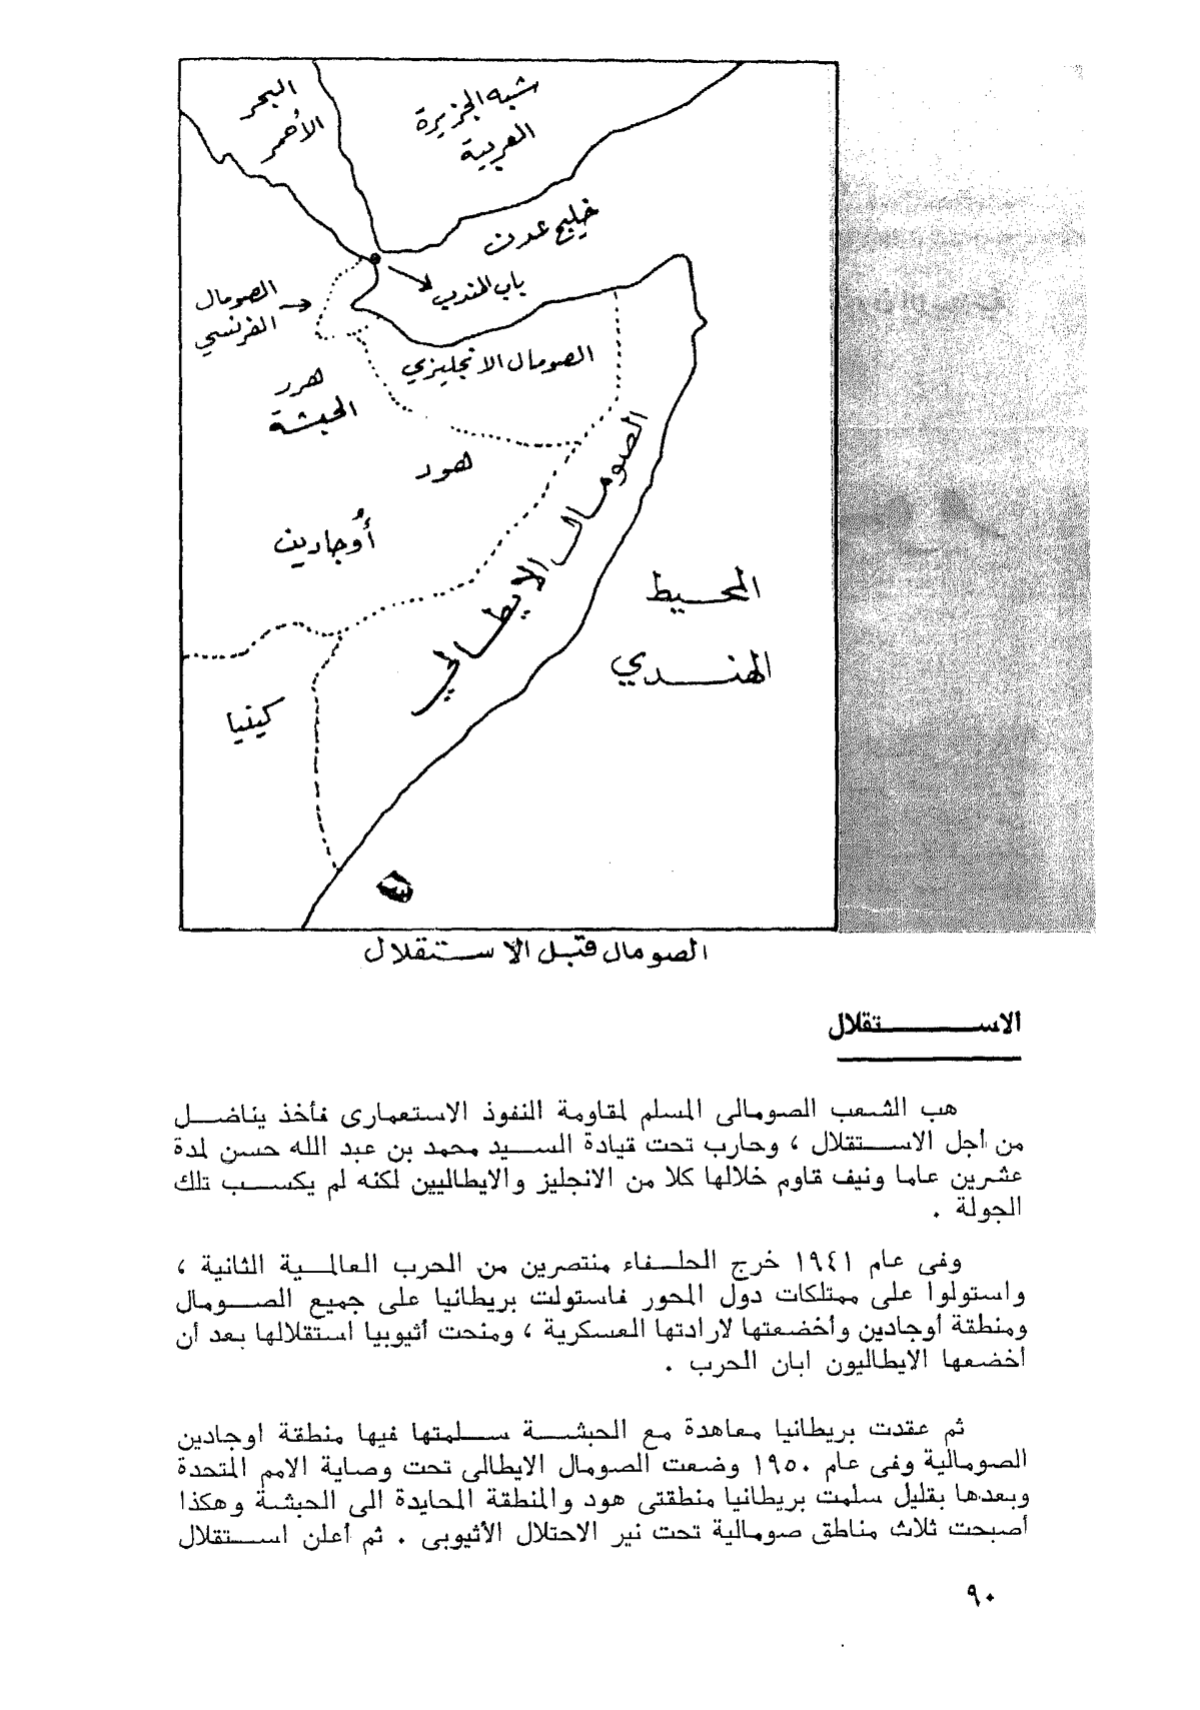 البحر
الأحمر
شبه الجزيرة
العربية
خليج عدن
باب المندب
الصومال
الفرنسي
الصومال الانجليزي
هرر
الحبشة
هود
أوجادين
الصومال الايطالي
المحيط
الهندي
كينيا
الصومال قبل الاستقلال
الاستقلال
هب الشعب الصومالى المسلم لمقاومة النفوذ الاستعمارى فأخذ يناضل
من أجل الاستقلال ، وحارب تحت قيادة السيد محمد بن عبد الله حسن لمدة
عشرين عاما ونيف قاوم خلالها كلا من الانجليز والايطاليين لكنه لم يكسب تلك
الجولة .
وفى عام ١٩٤١ خرج الحلفاء منتصرين من الحرب العالمية الثانية ،
واستولوا على ممتلكات دول المحور فاستولت بريطانيا على جميع الصومال
ومنطقة أوجادين وأخضعتها لارادتها العسكرية ، ومنحت أثيوبيا استقلالها بعد أن
أخضعها الايطاليون ابان الحرب .
ثم عقدت بريطانيا معاهدة مع الحبشة سلمتها فيها منطقة اوجادين
الصومالية وفى عام ١٩٥٠ وضعت الصومال الايطالى تحت وصاية الامم المتحدة
وبعدها بقليل سلمت بريطانيا منطقتى هود والمنطقة المحايدة الى الحبشة وهكذا
أصبحت ثلاث مناطق صومالية تحت نير الاحتلال الأثيوبى . ثم أعلن استقلال
٩٠